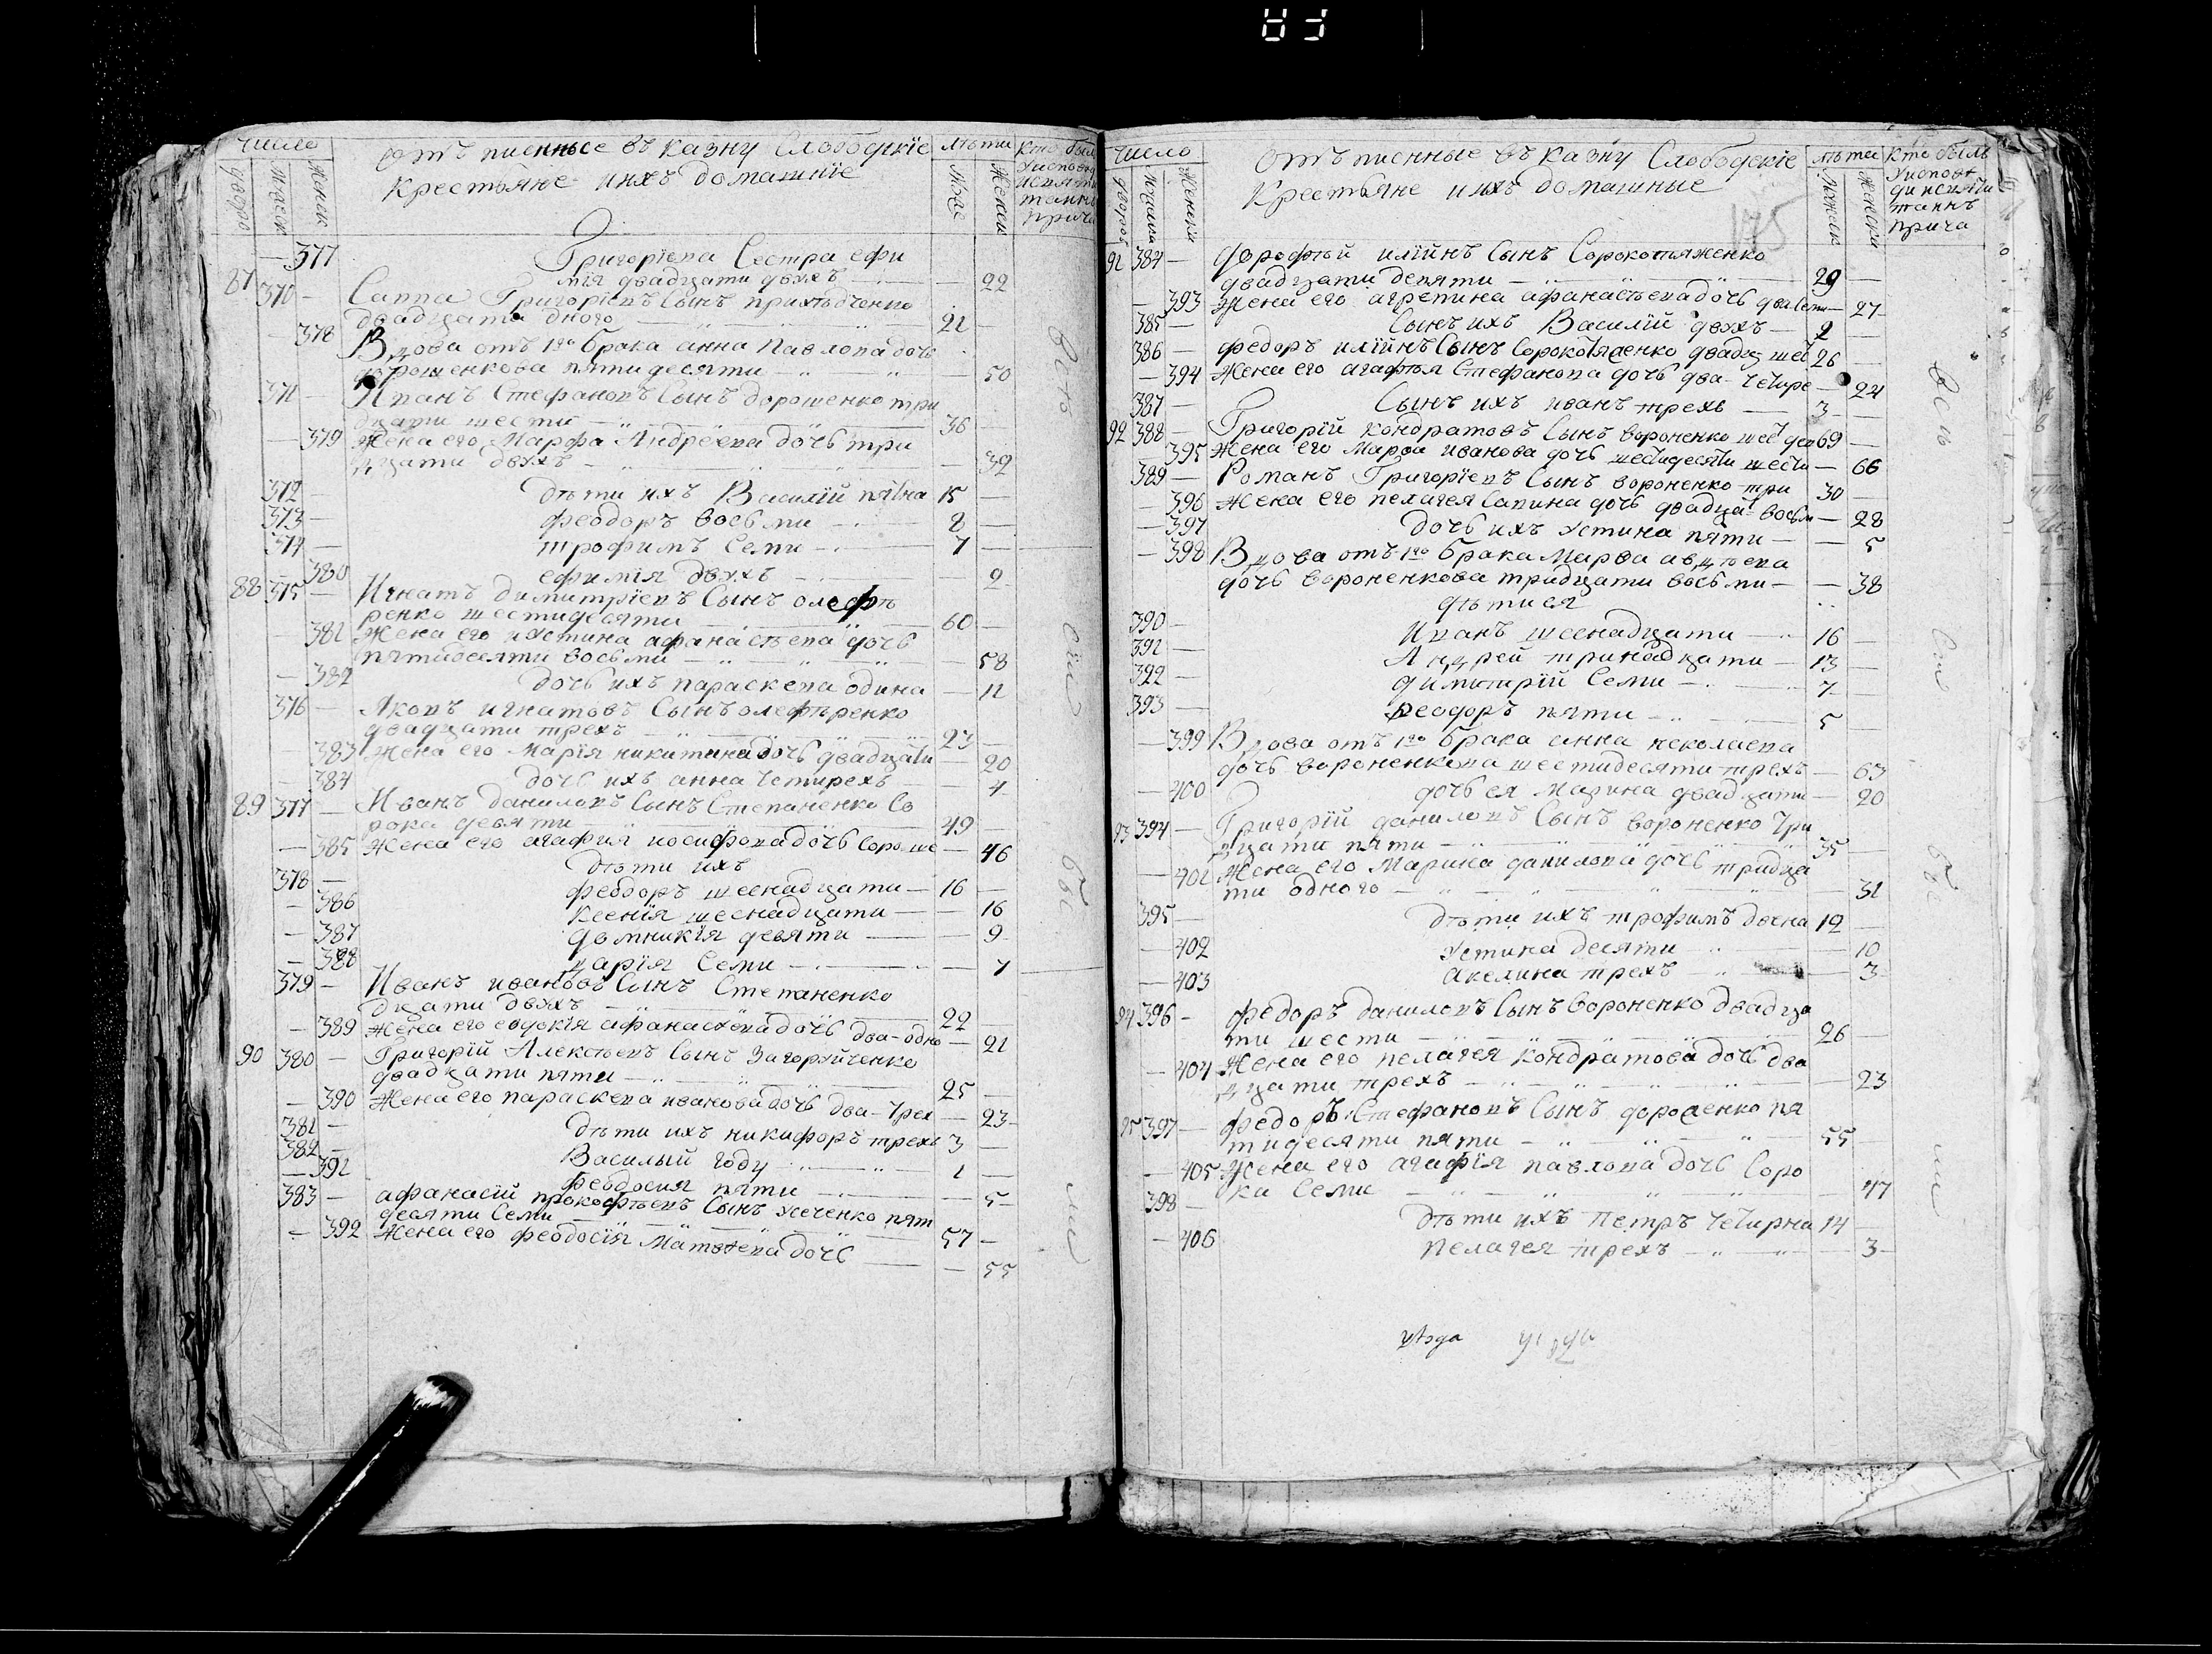 Число
отъ писенные въ казну Слободскіе
крестьяне ихъ домашніе
лѣта
377 Григоріева Сестра ефи
мія двадцати двухъ 22
87 370 Савва Григоріевъ Сынъ
двадцати одного 21
378 Вдова отъ 1го брака анна Павлова дочь
дорошенкова пятидесяти 50
371 Иванъ Стефановъ Сынъ дорошенко три
дцати шести 36
379 Жена его Марфа Андреева дочь три
дцати двухъ 32
372 дѣти ихъ Василій пятна 15
373 феодоръ восьми 8
374 трофимъ Семи 7
380 ефимія двухъ 2
88 375 Игнатъ димитріевъ Сынъ олефѣ
ренко шестидесяти 60
381 Жена его иустина афанасьева дочь
пятидесяти восьми 58
382 дочь ихъ параскева одина 11
376 Яковъ игнатовъ Сынъ олефѣренко
двадцати трехъ 23
383 Жена его Марія никитина дочь двадцати 20
384 дочь ихъ анна четирехъ 4
89 377 Иванъ даниловъ Сынъ Степаненко Со
рока девяти 49
385 Жена его агафия иосифова дочь Сорош 46
дѣти ихъ
378 феодоръ шеснадцати 16
386 ксенія шеснадцати 16
387 домникія девяти 9
388 дарія Семи 7
379 Иванъ ивановъ Сынъ Степаненко
дцати двухъ 22
389 Жена его евдокія афанасіева дочь два-одно 21
90 380 Григорій Алексѣевъ Сынъ Загоруйченко
двадцати пяти 25
390 Жена его параскева иванова дочь два-трех 23
381 дѣти ихъ никифоръ трехъ 3
382 Василый году 1
391 феодосия пяти 5
383 афанасій прокофѣевъ Сынъ усченко пят
десяти Семи 57
392 Жена его феодосія Матвѣева дочь 55
Число
отъ писенные въ казну Слободскіе
Крестьяне ихъ домашные
лѣта
Кто былъ
175
91 384 дорофѣй илійнъ Сынъ Сорокотяженко
двадцати девяти 29
393 Жена его агрепина афанасьева дочь два Сем 27
385 Сынъ ихъ Василій двухъ 2
386 федоръ илійнъ Сынъ Сорокотяженко двадц шес 26
394 Жена его агафья Стефанова дочь два-четире 24
387 Сынъ ихъ иванъ трехъ 3
92 388 Григорій кондратовъ Сынъ вороненко шес дев 69
395 Жена его Марфа иванова дочь шестидесяти шести 66
389 Романъ Григоріевъ Сынъ вороненко три 30
396 Жена его пелагея Савина дочь двадца-восьм 28
397 дочь ихъ Устина пяти 5
398 Вдова отъ 1го брака Марфа авдѣева
дочь вороненкова тридцати восьми 38
дѣти ея
390 Иванъ шеснадцати 16
391 Андрей тринадцати 13
392 димитрій Семи 7
393 феодоръ пяти 5
399 Вдова отъ 1го брака анна николаева
дочь вороненкова шестидесяти трехъ 63
400 дочь ея Марина двадцати 20
93 394 Григорій даниловъ Сынъ вороненко три
дцати пяти 35
401 Жена его Марина данилова дочь тридца
ти одного 31
395 дѣти ихъ трофимъ двена 12
402 Устина десяти 10
403 акелина трехъ 3
94 396 федоръ даниловъ Сынъ вороненко двадца
ти шести 26
404 Жена его пелагея кондратова дочь два
дцати трехъ 23
95 397 федоръ Стефановъ Сынъ доросенко пя
тидесяти пяти 55
405 Жена его агафія павлова дочь Соро
ка Семи 47
398 дѣти ихъ петръ четирна 14
406 пелагея трехъ 3
уѣзда